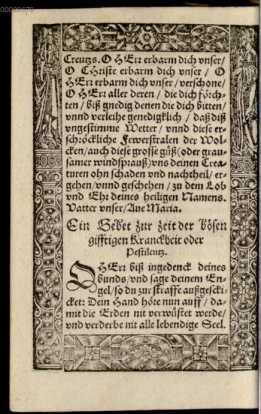 Creutzs. O HErr erbarm dich vnser/
O CHriste erbarm dich vnser / O
HErr erbarm dich vnser / verschone/
O HErr aller deren / die dich förch-
ten / biß gnedig denen die dich bitten/
vnnd verleihe genediglich / daß diß
vngestimme Wetter / vnnd diese er-
schröckliche Fewerstralen der Wol-
cken / auch diese grosse güß (oder grau-
samer windßprauß) vns deinen Crea-
turen ohn schaden vnd nachtheil / er-
gehen / vnnd geschehen / zu dem Lob
vnd Ehr deines heiligen Namens.
Vatter vnser / Aue Maria.
Ein Gebet zur zeit der bösen
gifftigen Kranckheit oder
Pestilentz.
O HErr biß ingedenck deines
bunds / vnd sage deinem En-
gel / so du zur straffe außgeschi-
cket: Dein Hand höre nun auff / da-
mit die Erden nit verwüstet werde/
vnd verderbe nit alle lebendige Seel.